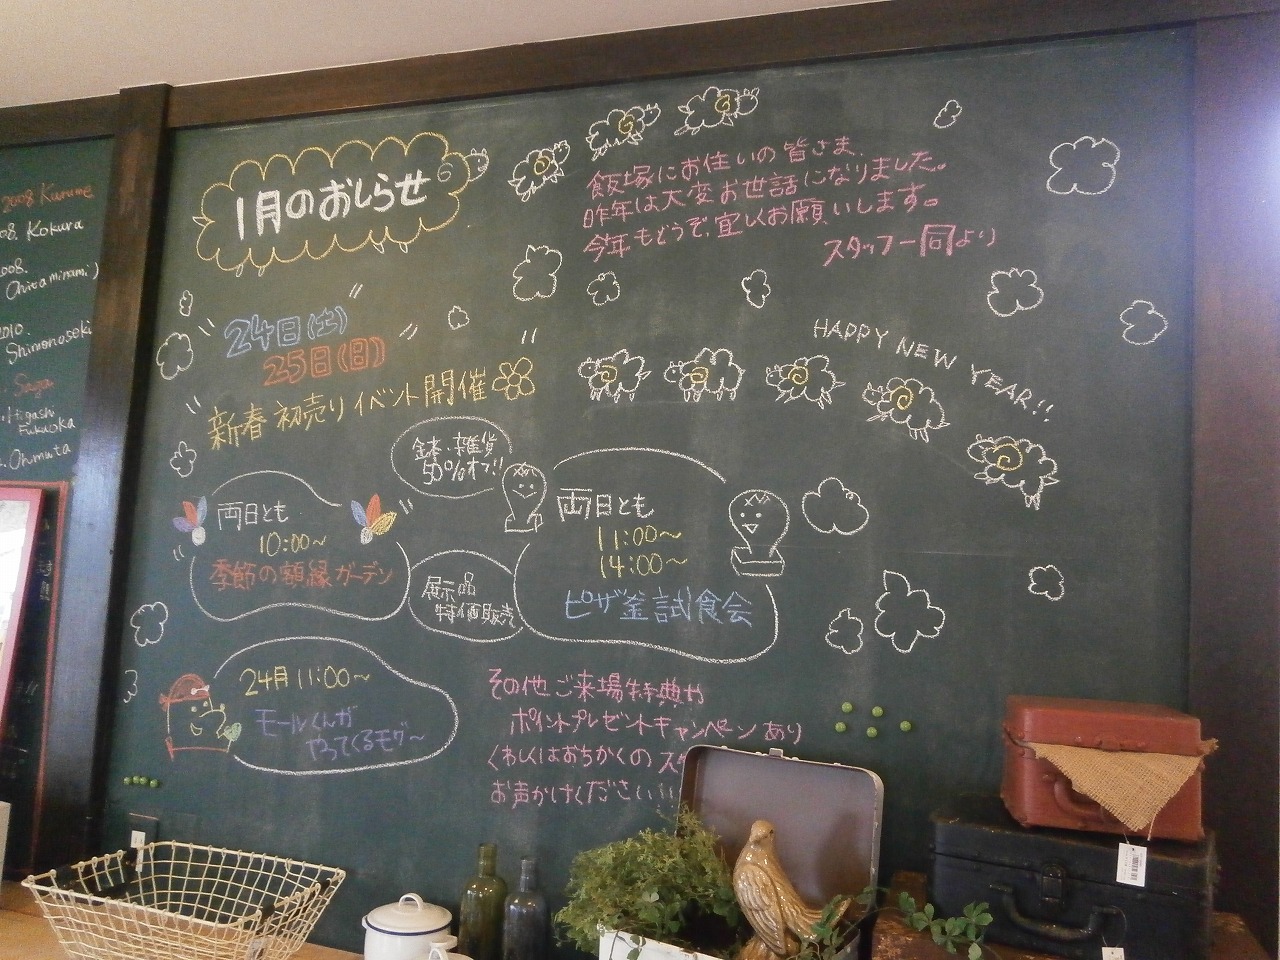 2008 Kurume
08. Kokura
2008.
Ohira minami)
2010.
Shimonoseki
Saga
Higashi
Fukuoka
Ohmuta
1月のおしらせ
飯塚にお住いの皆さま、
昨年は大変お世話になりました。
今年もどうぞ、宜しくお願いします。
スタッフ一同より
24日(土)
25日(日)
新春初売りイベント開催
HAPPY NEW YEAR!!
鉢・雑貨
50%オフ!!
両日とも
10:00~
季節の額縁ガーデン
展示品
特価販売
両日とも
11:00~
14:00~
ピザ釜試食会
24日 11:00~
モールくんが
やってくるモグ~
その他ご来場特典や
ポイントプレゼントキャンペーンあり
くわしくはおちかくのスタ
お声かけください!!